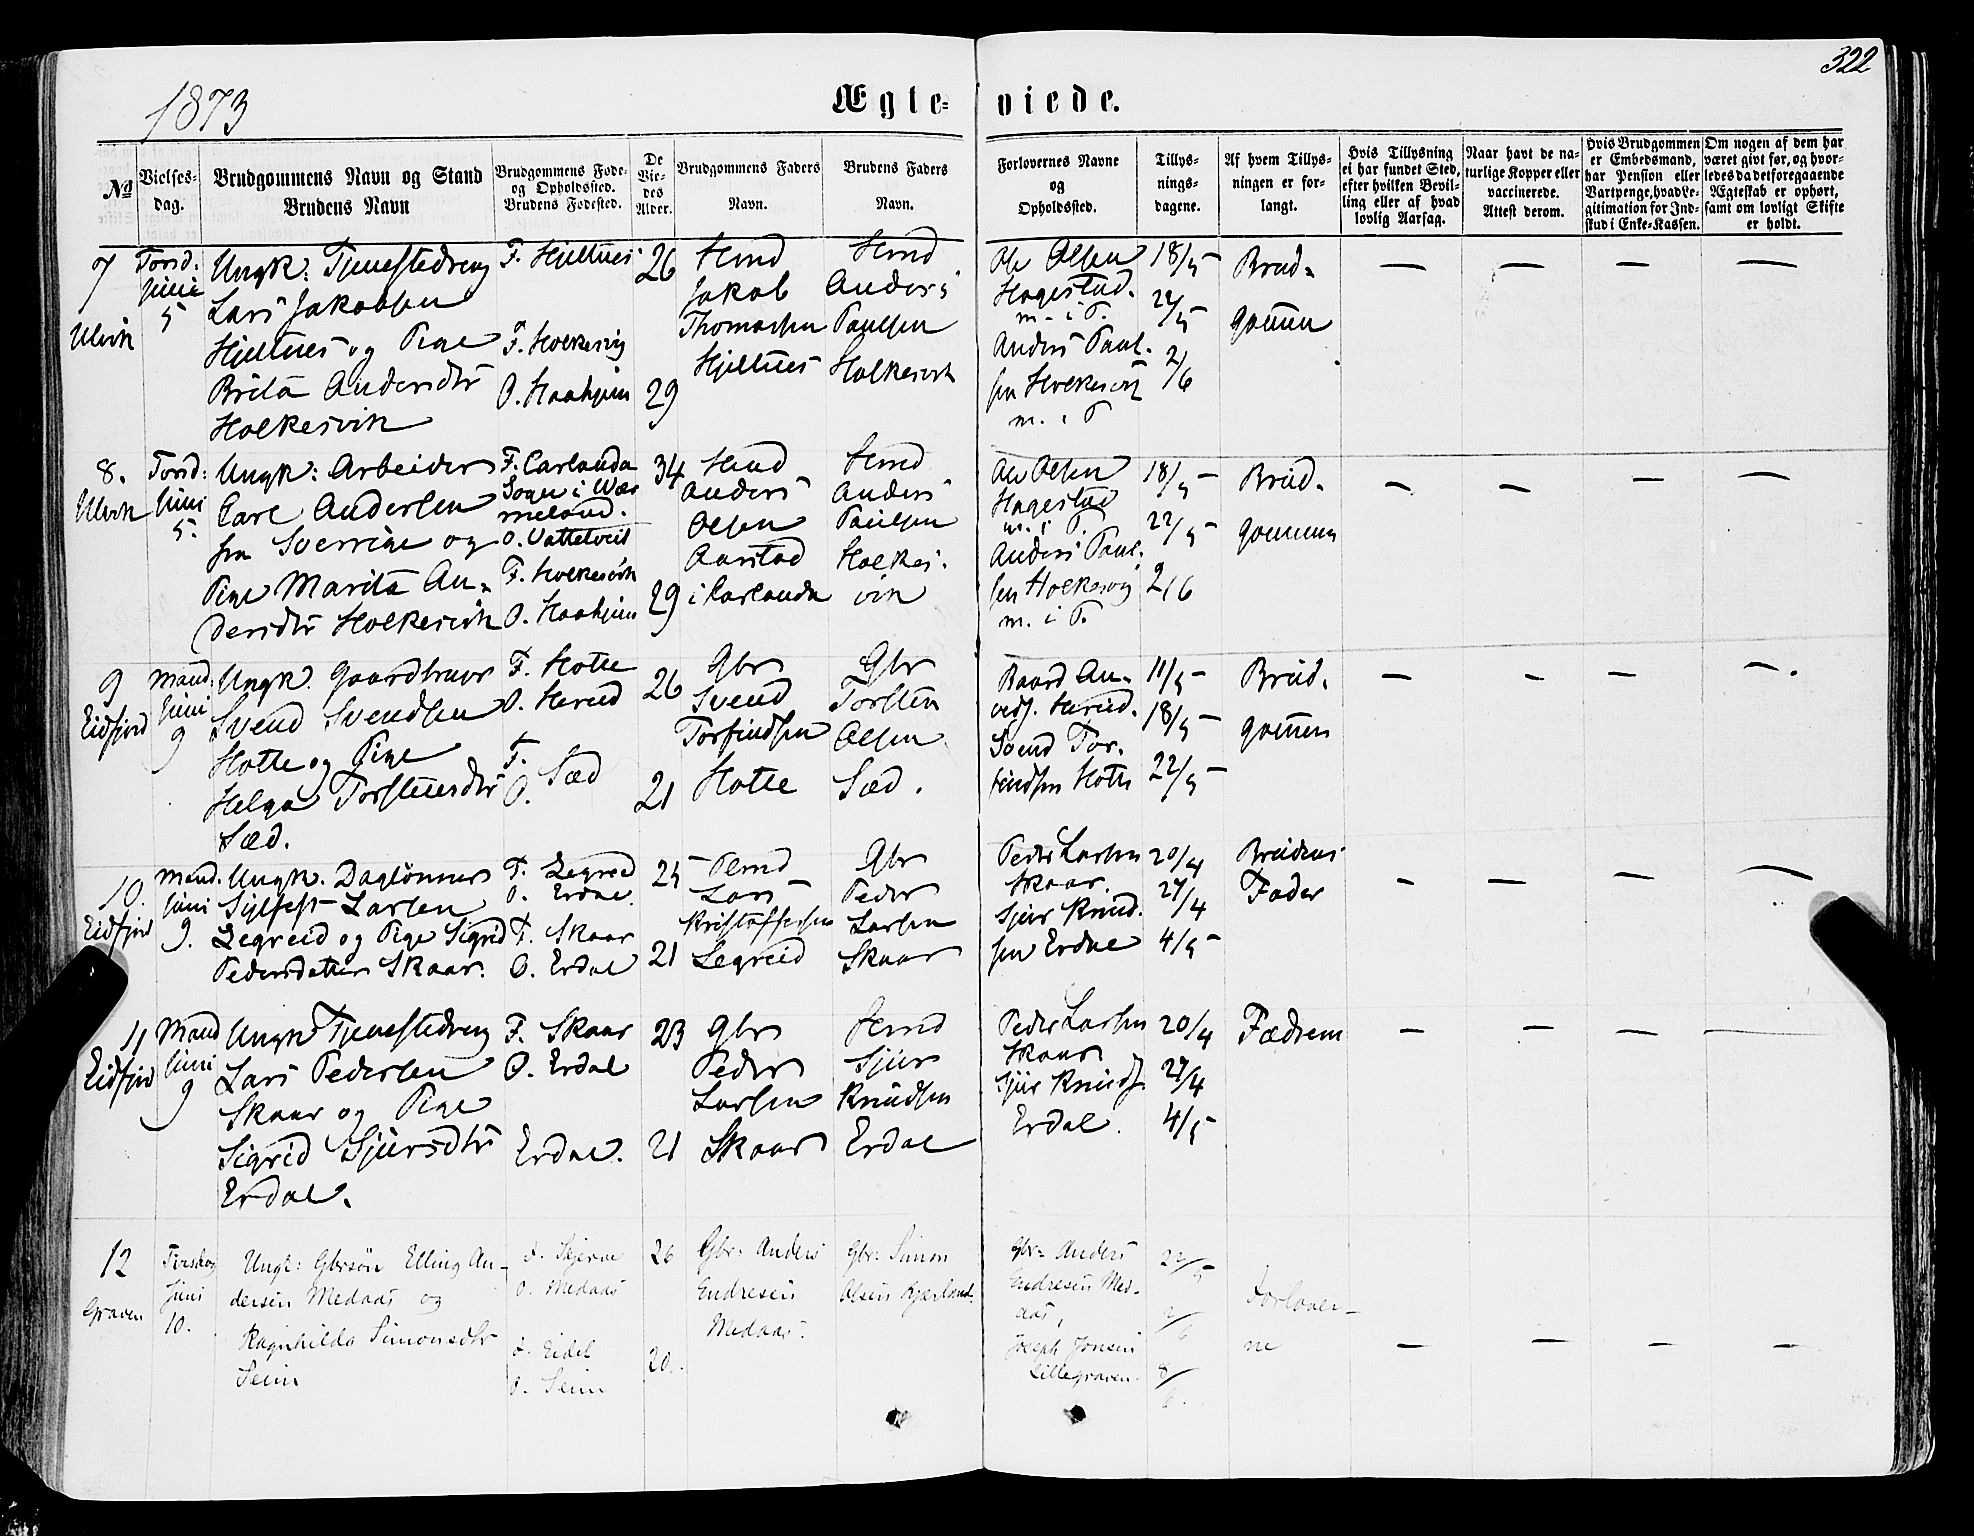 322
1873
Ægte- viede.
No
Vielses-
dag.
Brudgommens Navn og Stand
Brudens Navn
Brudgommens Føde-
og Opholdssted.
Brudens Fødested.
De
Vie-
des
Alder.
Brudgommens Faders
Navn.
Brudens Faders
Navn.
Forlovernes Navne
og
Opholdssted.
Tillys-
nings-
dagene.
Af hvem Tillys-
ningen er for-
langt.
Hvis Tillysning
ei har fundet Sted,
efter hvilken Bevil-
ling eller af hvad
lovlig Aarsag.
Naar havt de na-
turlige Kopper eller
vaccinerede.
Attest derom.
Hvis Brudgommen
er Embedsmand,
har Pension eller
Vartpenge, hvad Le-
gitimation for Ind-
skud i Enke-Kassen.
Om nogen af dem har
været givt før, og hvor-
ledes da det foregaaende
Ægteskab er ophørt,
samt om lovligt Skifte
er holdt.
7
Ulvik
Torsd:
Juni
5
Ungk: Tjenestedreng
Lars Jakobsen
Hjeltnes og Pige
Brita Andersdtr
Holkesvik
F. Hjeltnes
F. Holkesvig
O. Haaheim
26
29
Hmd
Jakob
Thomassen
Hjeltnes
Hmd
Anders
Paulsen
Holkesvik
Ole Olsen
Hagestad.
m. i T.
Anders Paul-
sen Holkesvig
m. i T
18/5
22/5
2/6
Brud-
gommen
8.
Ulvik
Torsd:
Juni
5.
Ungk: Arbeider
Carl Andersen
fra Sverrige og
Pige Marita An-
dersdtr Holkesvik
F. Carlanda
Sogn i Wær
meland.
O. Vattetveit
F. Holkesvik
O. Haaheim
34
29
Hmd
Anders
Olsen
Aarstad
i Carlanda
Hmd
Anders
Paulsen
Holkes-
vik
Ole Olsen
Hagestad
m. i T.
Anders Paul-
sen Holkesvig
m. i T.
18/5
22/5
2/6
Brud-
gommen
9
Eidfjord
Mand:
Juni
9
Ungk. Gaardbruger
Svend Svendsen
Hotle og Pige
Helga Torstensdtr
Sæd.
F. Hotle
O. Hereid
F.
O. Sæd
26
21
Gbr
Svend
Torfindsen
Hotle
Gbr
Torsten
Olsen
Sæd.
Baard An-
vedf. Hereid.
Svend Tor-
findsen Hotle
11/5
18/5
22/5
Brud-
gommen
10.
Eidfjord
Mand.
Juni
9.
Ungk. Daglønner
Sylfest Larsen
Legreid og Pige Sigrid
Pedersdatter Skaar.
F. Legreid
O. Erdal
F. Skaar
O. Erdal
25
21
Hmd
Lars
Kristoffersen
Legreid
Gbr
Peder
Larsen
Skaar
Peder Larsen
Skaar.
Sjur Knud-
sen Erdal
20/4
27/4
4/5
Brudens
Fader
11
Eidfjord
Mand
Juni
9
Ungk Tjenestedreng
Lars Pedersen
Skaar og Pige
Sigrid Sjursdtr
Erdal.
F. Skaar
O. Erdal
Erdal.
23
21
Gbr
Peder
Larsen
Skaar
Hmd
Sjur
Knudsen
Erdal
Peder Larsen
Skaar
Sjur Knuds.
Erdal.
20/4
27/4
4/5
Fædrene
12
Graven
Tirsdag
Juni
10.
Ungk: Gbrsøn Elling An-
dersen Medaas og
Ragnhilda Simonsdtr
Seim
F. Skjerve
O. Medaas
F. Eidet
O. Seim
26
20.
Gbr: Anders
Endresen
Medaas.
Gbr: Simon
Olsen Kjærland.
Gbr: Anders
Endresen Med-
aas,
Joseph Jonsen
Lillegraven.
22/5
2/6
8/6.
Forlover-
ne